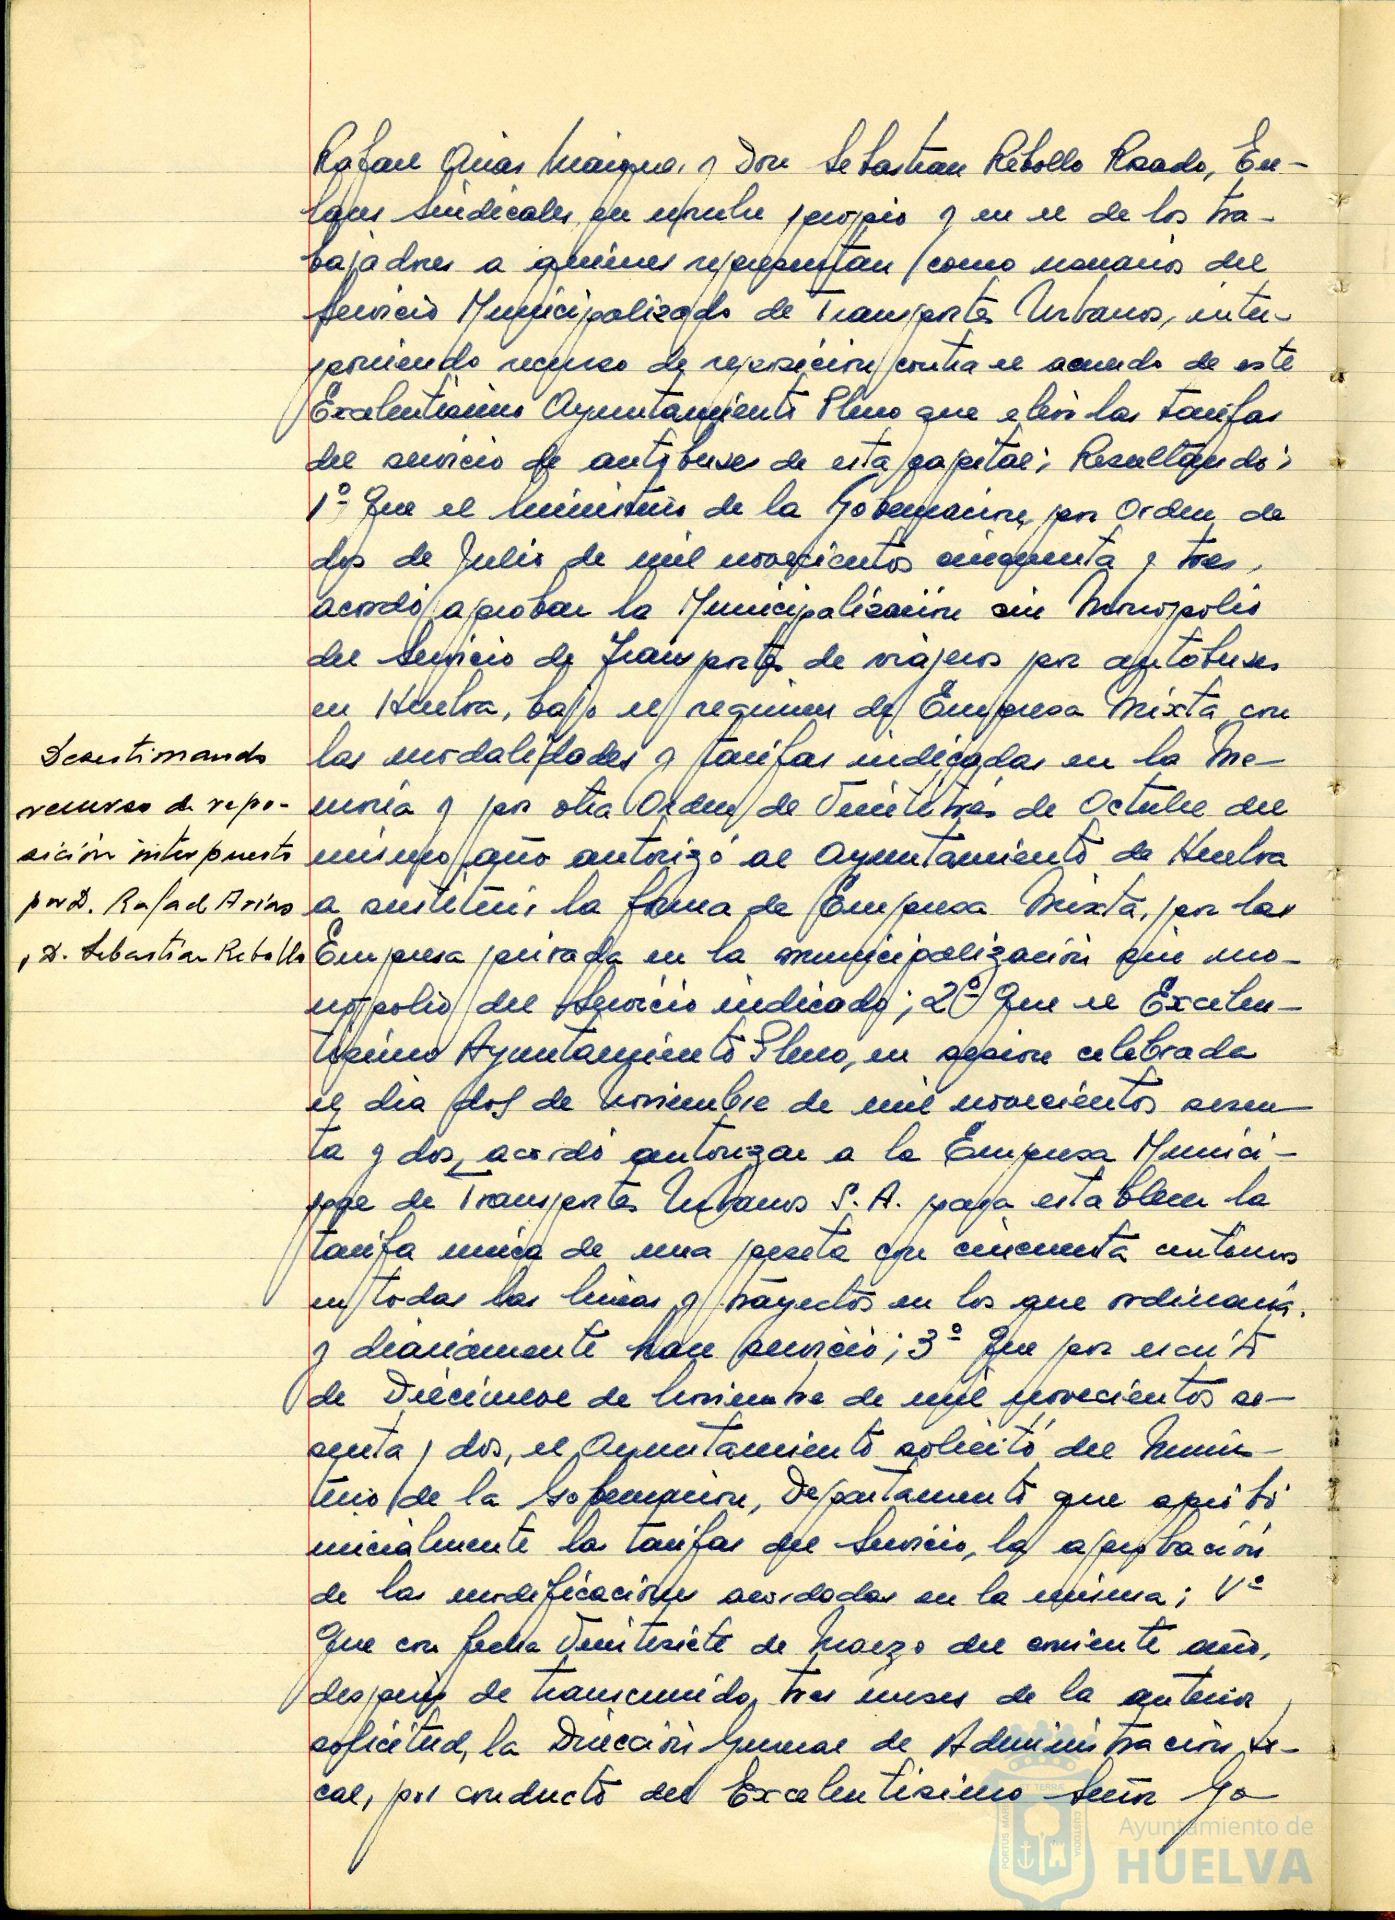 Rafael Arias Maiquez y Don Sebastian Rebollo Rosado, En-
laces Sindicales, en nombre propio y en el de los tra-
bajadores a quienes representan, como usuarios del
Servicio Municipalizado de Transportes Urbanos, inter-
poniendo recurso de reposicion contra el acuerdo de este
Excelentisimo Ayuntamiento Pleno que elevó las tarifas
del servicio de autobuses de esta capital; Resultando:
1º Que el Ministerio de la Gobernacion, por Orden de
dos de Julio de mil novecientos cincuenta y tres,
acordó aprobar la Municipalización sin Monopolio
del Servicio de Transportes de viajeros por autobuses
en Huelva, bajo el regimen de Empresa Mixta con
las modalidades y tarifas indicadas en la Me-
moria y por otra Orden de Veintitrés de Octubre del
mismo año autorizó al Ayuntamiento de Huelva
a sustituir la forma de Empresa Mixta, por la
Empresa privada en la municipalización sin mo-
nopolio del Servicio indicado; 2º Que el Excelen-
tisimo Ayuntamiento Pleno, en sesion celebrada
el dia dos de Noviembre de mil novecientos sesen-
ta y dos, acordó autorizar a la Empresa Munici-
pal de Transportes Urbanos S. A. para establecer la
tarifa unica de una peseta con cincuenta centimos
en todas las lineas y trayectos en los que ordinaria
y diariamente hace servicio; 3º Que por escrito
de Diecinueve de Noviembre de mil novecientos se-
senta y dos, el Ayuntamiento solicitó del Minis-
terio de la Gobernacion, Departamento que aprobó
inicialmente las tarifas del Servicio, la aprobación
de las modificaciones acordadas en la misma; 4º
Que con fecha Veintisiete de Marzo del corriente año,
despues de transcurrido tres meses de la anterior
solicitud, la Dirección General de Administracion Lo-
cal, por conducto del Excelentisimo Señor Go
Desestimando
recurso de repo-
sición interpuesto
por D. Rafael Arias
y D. Sebastian Rebollo
Ayuntamiento de
HUELVA